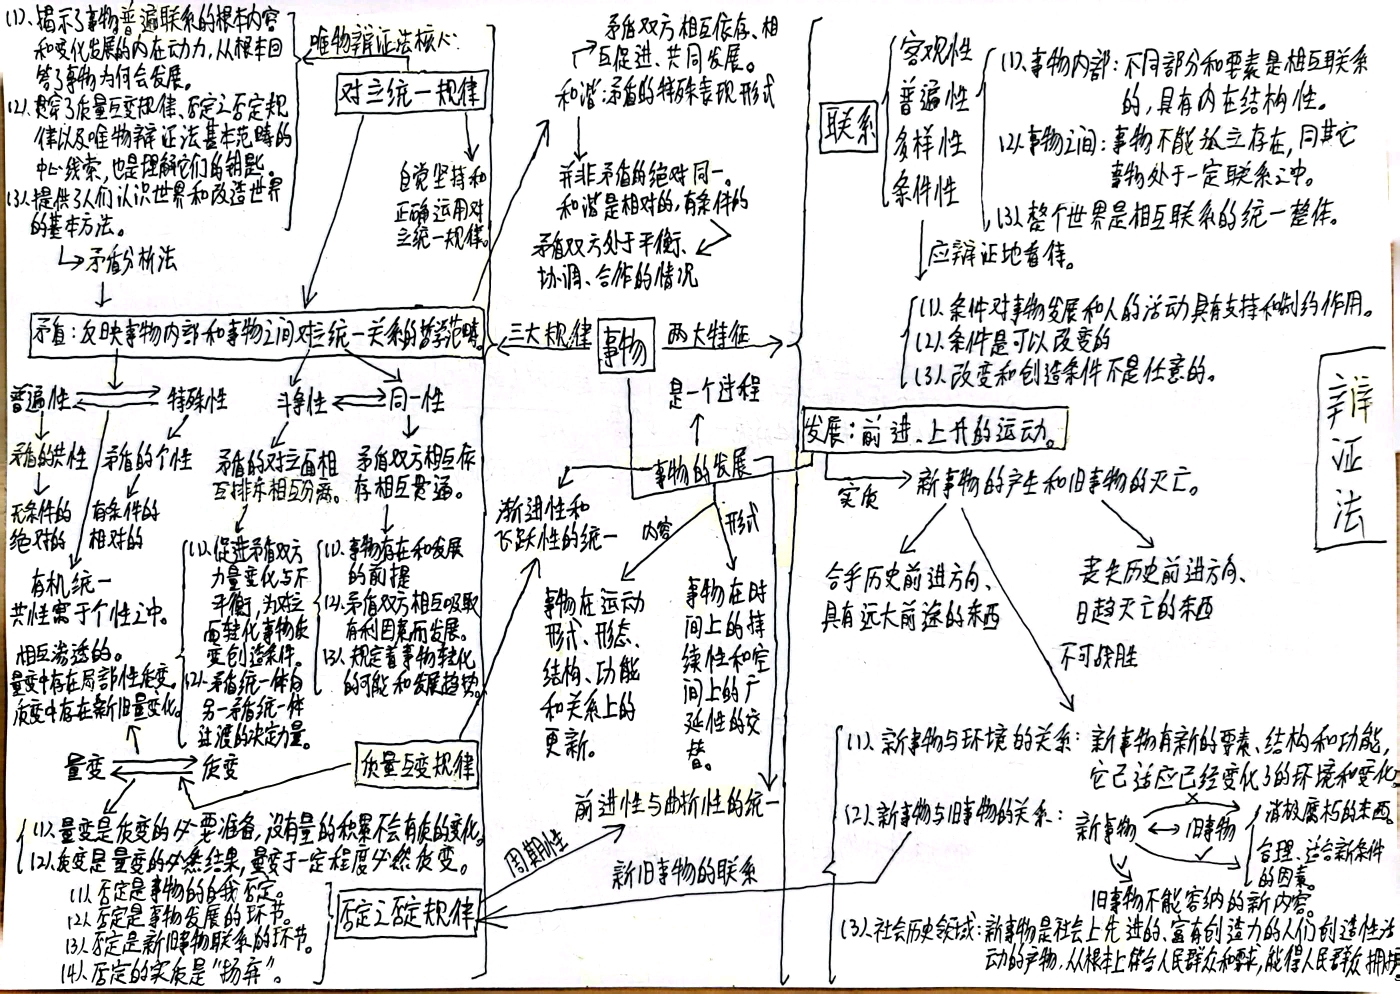 辩证法
事物
三大规律
两大特征
(1).揭示了事物普遍联系的根本内容
和变化发展的内在动力,从根本回
答了事物为何会发展。
(2).贯穿了质量互变规律、否定之否定规
律以及唯物辩证法基本范畴的
中心线索,也是理解它们的钥匙。
(3).提供了人们认识世界和改造世界
的基本方法。
矛盾分析法
唯物辩证法核心
对立统一规律
自觉坚持和
正确运用对
立统一规律。
矛盾双方相互依存、相
互促进、共同发展。
和谐:矛盾的特殊表现形式
并非矛盾的绝对同一。
和谐是相对的,有条件的
矛盾双方处于平衡、
协调、合作的情况
矛盾:反映事物内部和事物之间对立统一关系的哲学范畴。
普遍性
特殊性
斗争性
同一性
矛盾的共性
矛盾的个性
矛盾的对立面相
互排斥相互分离。
矛盾双方相互依
存相互贯通。
无条件的
绝对的
有条件的
相对的
有机统一
共性寓于个性之中。
相互渗透的。
量变中存在局部性质变。
质变中存在新旧量变化。
(1).促进矛盾双方
力量变化与不
平衡,为对立
面转化事物质
变创造条件。
(2).矛盾统一体向
另一矛盾统一体
过渡的决定力量。
(1).事物存在和发展
的前提
(2).矛盾双方相互吸取
有利因素而发展。
(3).规定着事物转化
的可能和发展趋势。
量变
质变
质量互变规律
(1).量变是质变的必要准备,没有量的积累不会有质的变化。
(2).质变是量变的必然结果,量变于一定程度必然质变。
(1).否定是事物的自我否定。
(2).否定是事物发展的环节。
(3).否定是新旧事物联系的环节。
(4).否定的实质是“扬弃”。
否定之否定规律
周期性
新旧事物的联系
是一个过程
事物的发展
渐进性和
飞跃性的统一
内容
形式
事物在运动
形式、形态、
结构、功能
和关系上的
更新。
事物在时
间上的持
续性和空
间上的广
延性的交
替。
前进性与曲折性的统一
联系
客观性
普遍性
多样性
条件性
(1).事物内部:不同部分和要素是相互联系
的,具有内在结构性。
(2).事物之间:事物不能孤立存在,同其它
事物处于一定联系之中。
(3).整个世界是相互联系的统一整体。
应辩证地看待。
(1).条件对事物发展和人的活动具有支持和制约作用。
(2).条件是可以改变的
(3).改变和创造条件不是任意的。
发展:前进、上升的运动。
实质
新事物的产生和旧事物的灭亡。
合乎历史前进方向、
具有远大前途的东西
丧失历史前进方向、
日趋灭亡的东西
不可战胜
(1).新事物与环境的关系:新事物有新的要素、结构和功能,
它已适应已经变化了的环境和变化。
(2).新事物与旧事物的关系:
新事物
旧事物
消极腐朽的东西。
合理、适合新条件
的因素。
旧事物不能容纳的新内容。
(3).社会历史领域:新事物是社会上先进的、富有创造力的人们创造性活
动的产物,从根本上符合人民群众和要求,能得人民群众拥护。